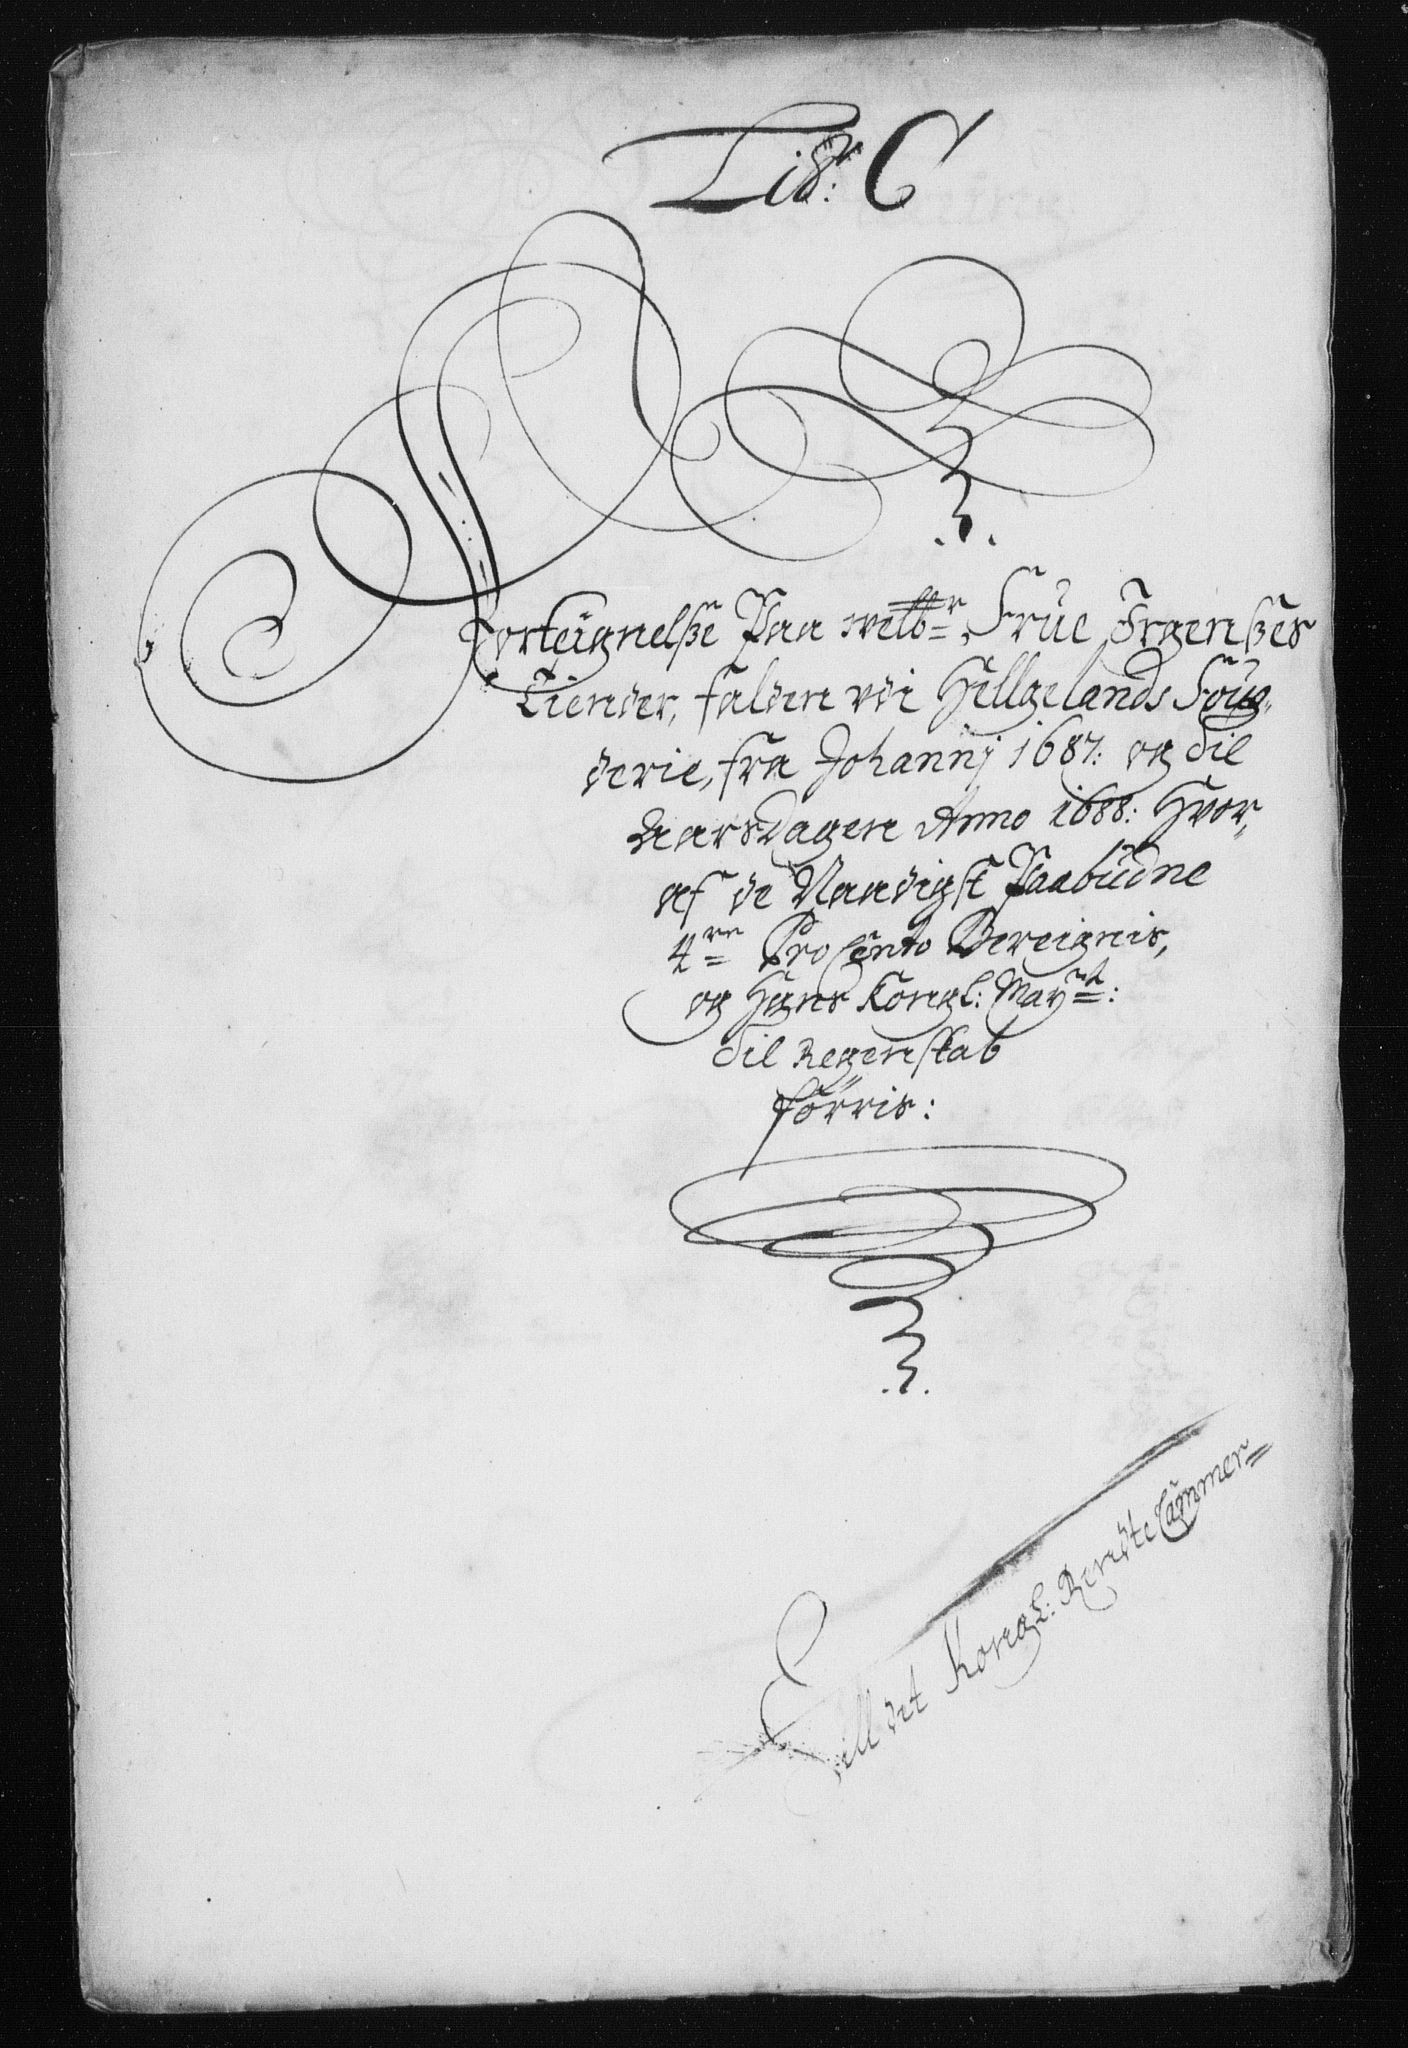 Litr: C
Forteignelße Paa welbr. Frue Irgenßes
Tiender, falden vdi Hellgelands Foug-
derie, fra Johannj 1687: og til
Aarsdagen Anno 1688: Hvor,
af de Naadigst Paabudne
4re Procento Bereignis,
og Hans Kongl: Mayst:
til Regenskab
föris:
Till det Kongl: Rendte Cammer=